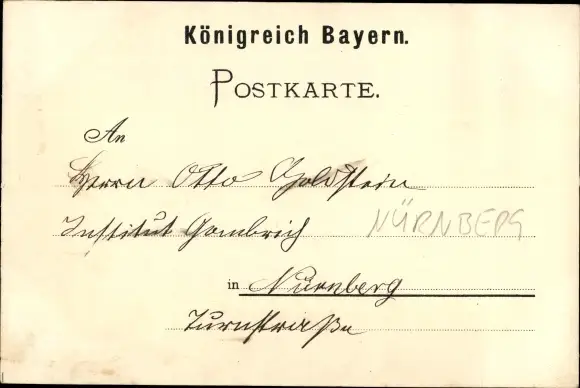 Königreich Bayern.
POSTKARTE.
An
Herrn Otto Goldstein
Institut Gombrich NÜRNBERG
in Nürnberg
Turnstraße